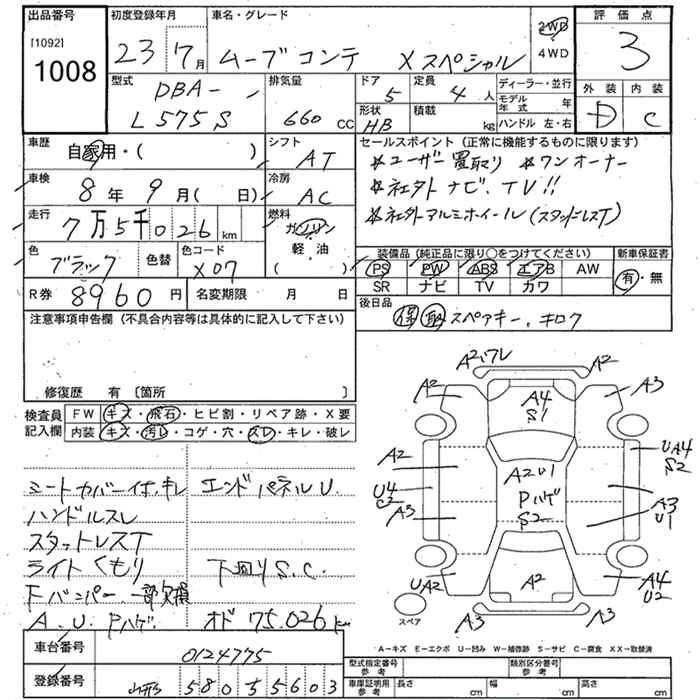 出品番号
[1092]
1008
初度登録年月
23 7月
車名・グレード
ムーブコンテ Xスペシャル
2WD
4WD
評価点
3
外装 内装
D C
型式
DBA-
L575S
排気量
660 cc
ドア
5
定員
4人
形状
HB
積載
kg
ディーラー・並行
モデル年式 年
ハンドル 左・右
車歴
自家用・( )
シフト
AT
車検
8年9月( 日)
冷房
AC
走行
7万5千026km
燃料
ガソリン
軽油
( )
色
ブラック
色替
色コード
X07
R券
8960円
名変期限 月 日
セールスポイント (正常に機能するものに限ります)
*ユーザー買取り *ワンオーナー
*社外ナビ、TV!!
*社外アルミホイール(スタッドレスT)
装備品 (純正品に限り○をつけてください)
PS PW ABS エアB AW
SR ナビ TV カワ
新車保証書
有・無
後日品
保 取 スペアキー、キロク
注意事項申告欄 (不具合内容等は具体的に記入して下さい)
修復歴 有 〔箇所 〕
検査員記入欄
FW キズ・飛石・ヒビ割・リペア跡・X要
内装 キズ・汚レ・コゲ・穴・スレ・キレ・破レ
シートカバー付、キレ エンドパネルU.
ハンドルスレ
スタットレスT
ライトくもり 下回りS.C.
Fバンパー、一部欠損
A.U.Pハゲ. オド75.026km
A2,ワレ
A2
A2
A4
S1
A3
A2
UA4
S2
A2U1
U4
C2
Pハゲ
S2
A3
A3
U1
UA2
A2
A4
U2
A3
A3
スペア
A-キズ E-エクボ U-凹み W-補修跡 S-サビ C-腐食 XX-取替済
車台番号
0124775
登録番号
山形 580 5 5603
型式指定番号 参考
類別区分番号 参考
車庫証明用 参考
長さ cm
幅 cm
高さ cm